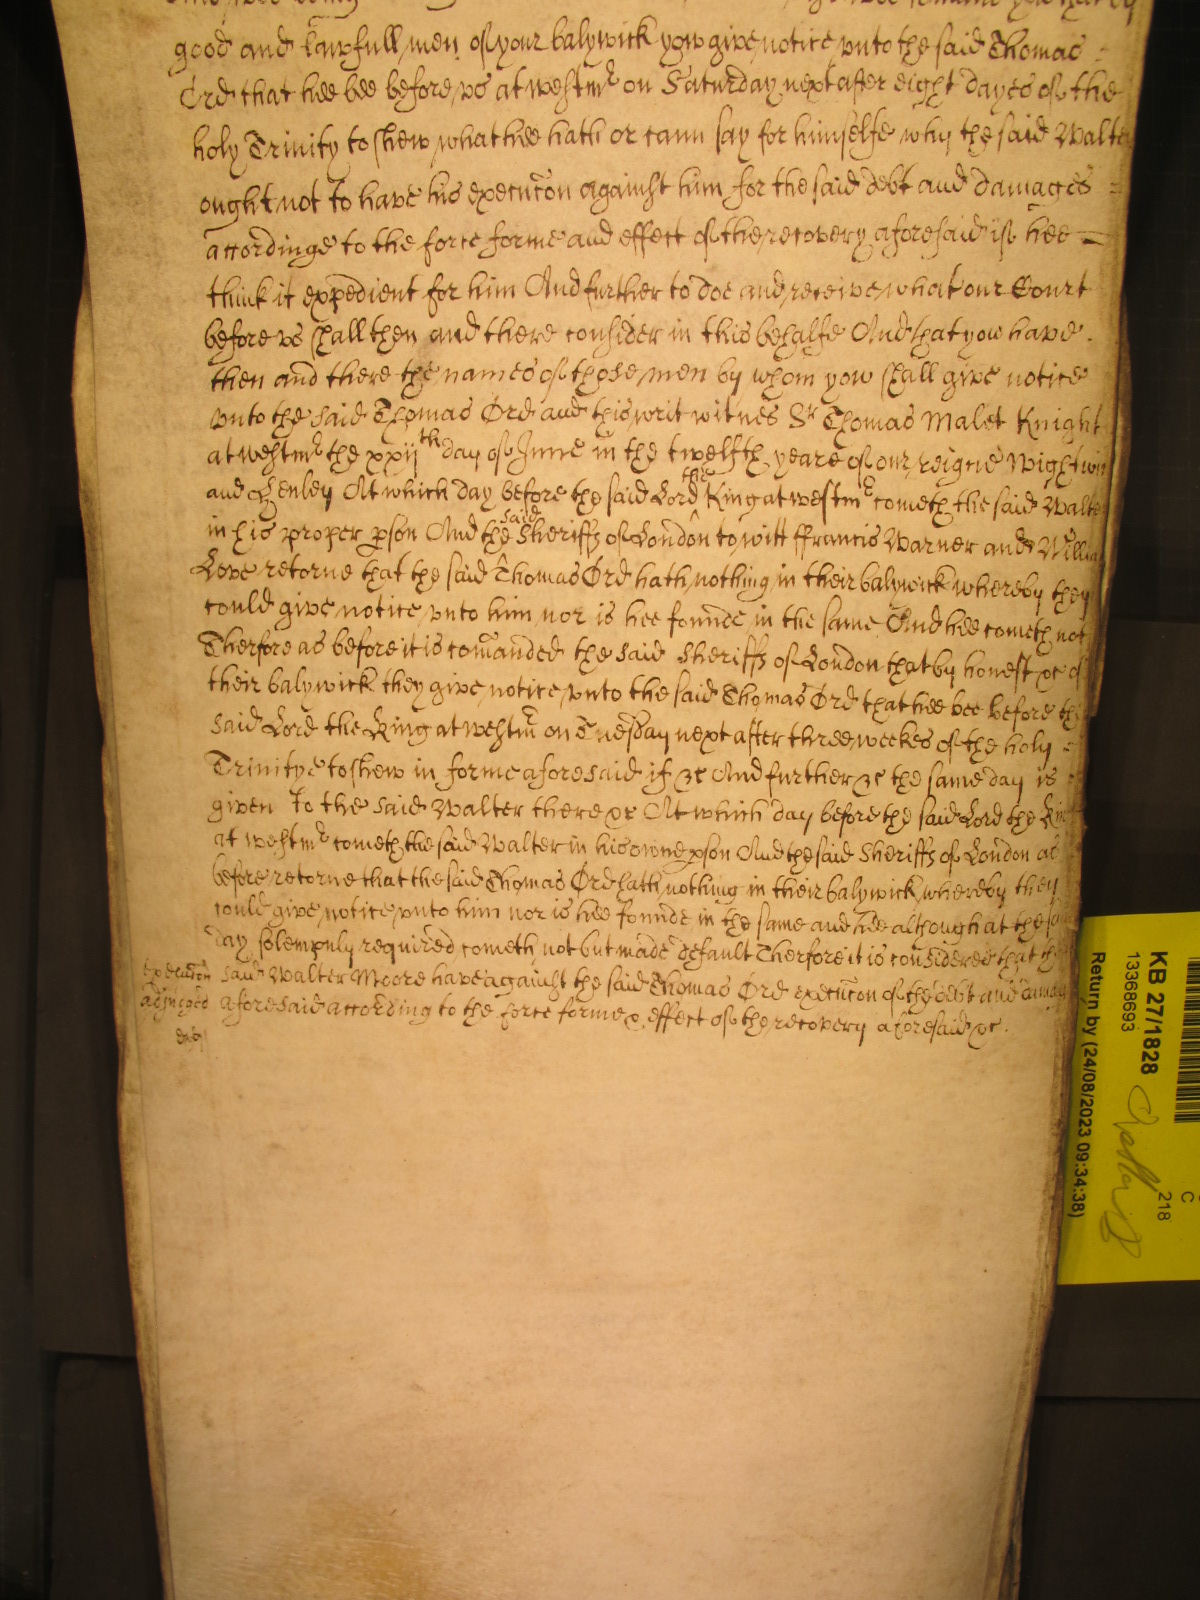 good and lawfull men of your balywick yow give notice vnto the said Thomas
Ord that hee bee before vs at westmr on Saturday next after eight dayes of the
holy Trinity to shew what hee hath or cann say for himselfe why the said Walter
ought not to have his execucon against him for the said debt and damages
accordinge to the force forme and effect of the recovery aforesaid if hee
think it expedient for him And further to doe and receive what our Court
before vs shall then and there consider in this behalfe And that yow have
then and there the names of those men by whom yow shall give notice
vnto the said Thomas Ord and this writ witnes Sr Thomas Malet Knight
at westmr the xxijth day of June in the twelfth yeare of our reigne Wightwi
and Henley At which day before the said Lord the King at westmr cometh the said Walter
in his proper pson And the said Sheriffs of London to witt ffrancis Warner and Willia
Love retorne that the said Thomas Ord hath nothing in their balywick whereby they
could give notice vnto him nor is hee founde in the same And hee cometh not
Therfore as before it is comanded the said Sheriffs of London that by honest &c of
their balywick they give notice vnto the said Thomas Ord that hee bee before the
said Lord the King at westmr on Tuesday next after three weekes of the holy
Trinitye to shew in forme aforesaid if &c And further &c the same day is
given to the said Walter there &c At which day before the said Lord the Kin
at westmr cometh the said Walter in his owne pson And the said Sheriffs of London as
before retorne that the said Thomas Ord hath nothing in their balywick whereby they
could give notice vnto him nor is hee founde in the same and hee although at the sa
day solempnly required cometh not but made default Therfore it is considered that the
execucon said Walter Moore have against the said Thomas Ord execucon of the debt and damag
adjudged aforesaid according to the force forme & effect of the recovery aforesaid &c.
KB 27/1828
13368693
Return by (24/08/2023 09:34:38)
218
C